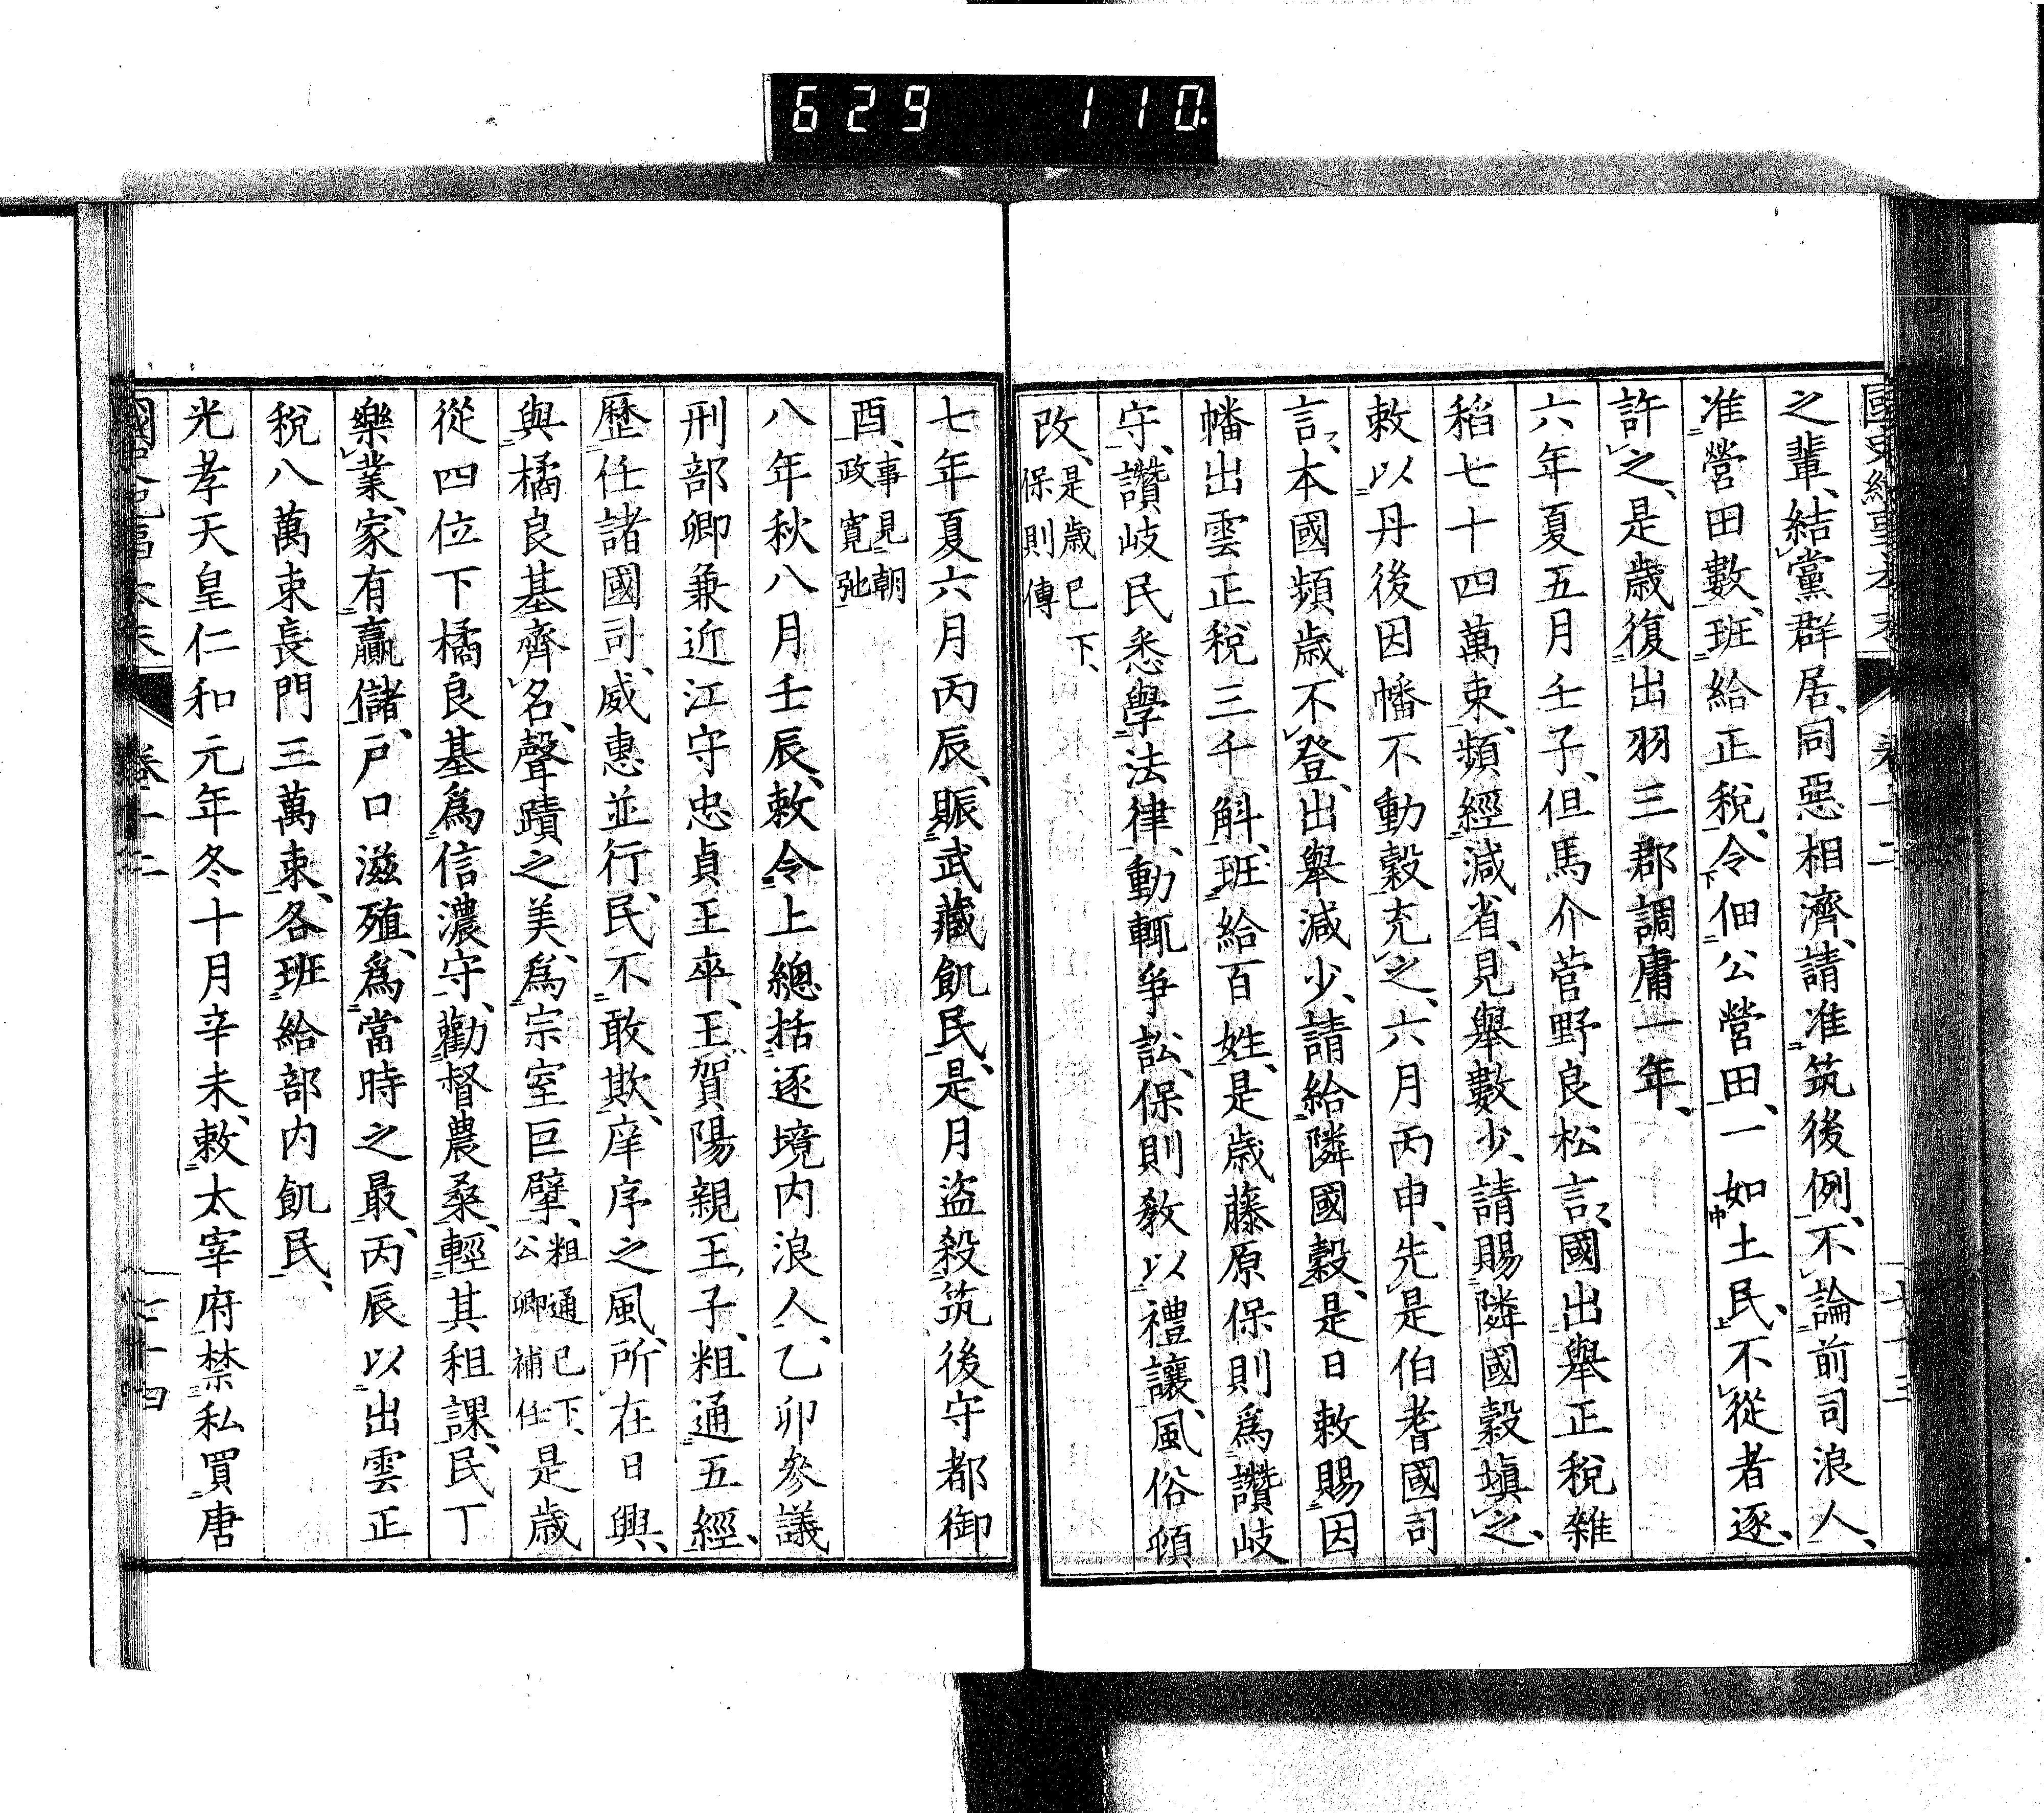 629 110
之輩、結黨群居、同惡相濟、請准筑後例、不論前司浪人、
准營田數、班給正稅、令佃公營田、一如土民、不從者逐、
許之、是歲復出羽三郡調庸一年、
六年夏五月壬子、但馬介菅野良松言、國出舉正稅雜
稻七十四萬束、頻經減省、見舉數少、請賜隣國穀塡之、
敕以丹後因幡不動穀充之、六月丙申、先是伯耆國司
言、本國頻歲不登、出舉減少、請給隣國穀、是日敕賜因
幡出雲正稅三千斛、班給百姓、是歲藤原保則爲讚岐
守、讚岐民悉學法律、動輒爭訟、保則敎以禮讓、風俗頓
改、是歲已下、
保則傳
七年夏六月丙辰、賑武藏飢民、是月盜殺筑後守都御
酉、事見朝
政寬弛
八年秋八月壬辰、敕令上總括逐境內浪人、乙卯參議
刑部卿兼近江守忠貞王卒、王賀陽親王子、粗通五經、
歷任諸國司、威惠並行、民不敢欺、庠序之風、所在日興、
與橘良基齊名、聲蹟之美、爲宗室巨擘、粗通已下、
公卿補任
是歲
從四位下橘良基爲信濃守、勸督農桑、輕其租課、民丁
樂業、家有贏儲、戶口滋殖、爲當時之最、丙辰以出雲正
稅八萬束長門三萬束、各班給部內飢民、
光孝天皇仁和元年冬十月辛未、敕太宰府禁私買唐
卷十二
七十四